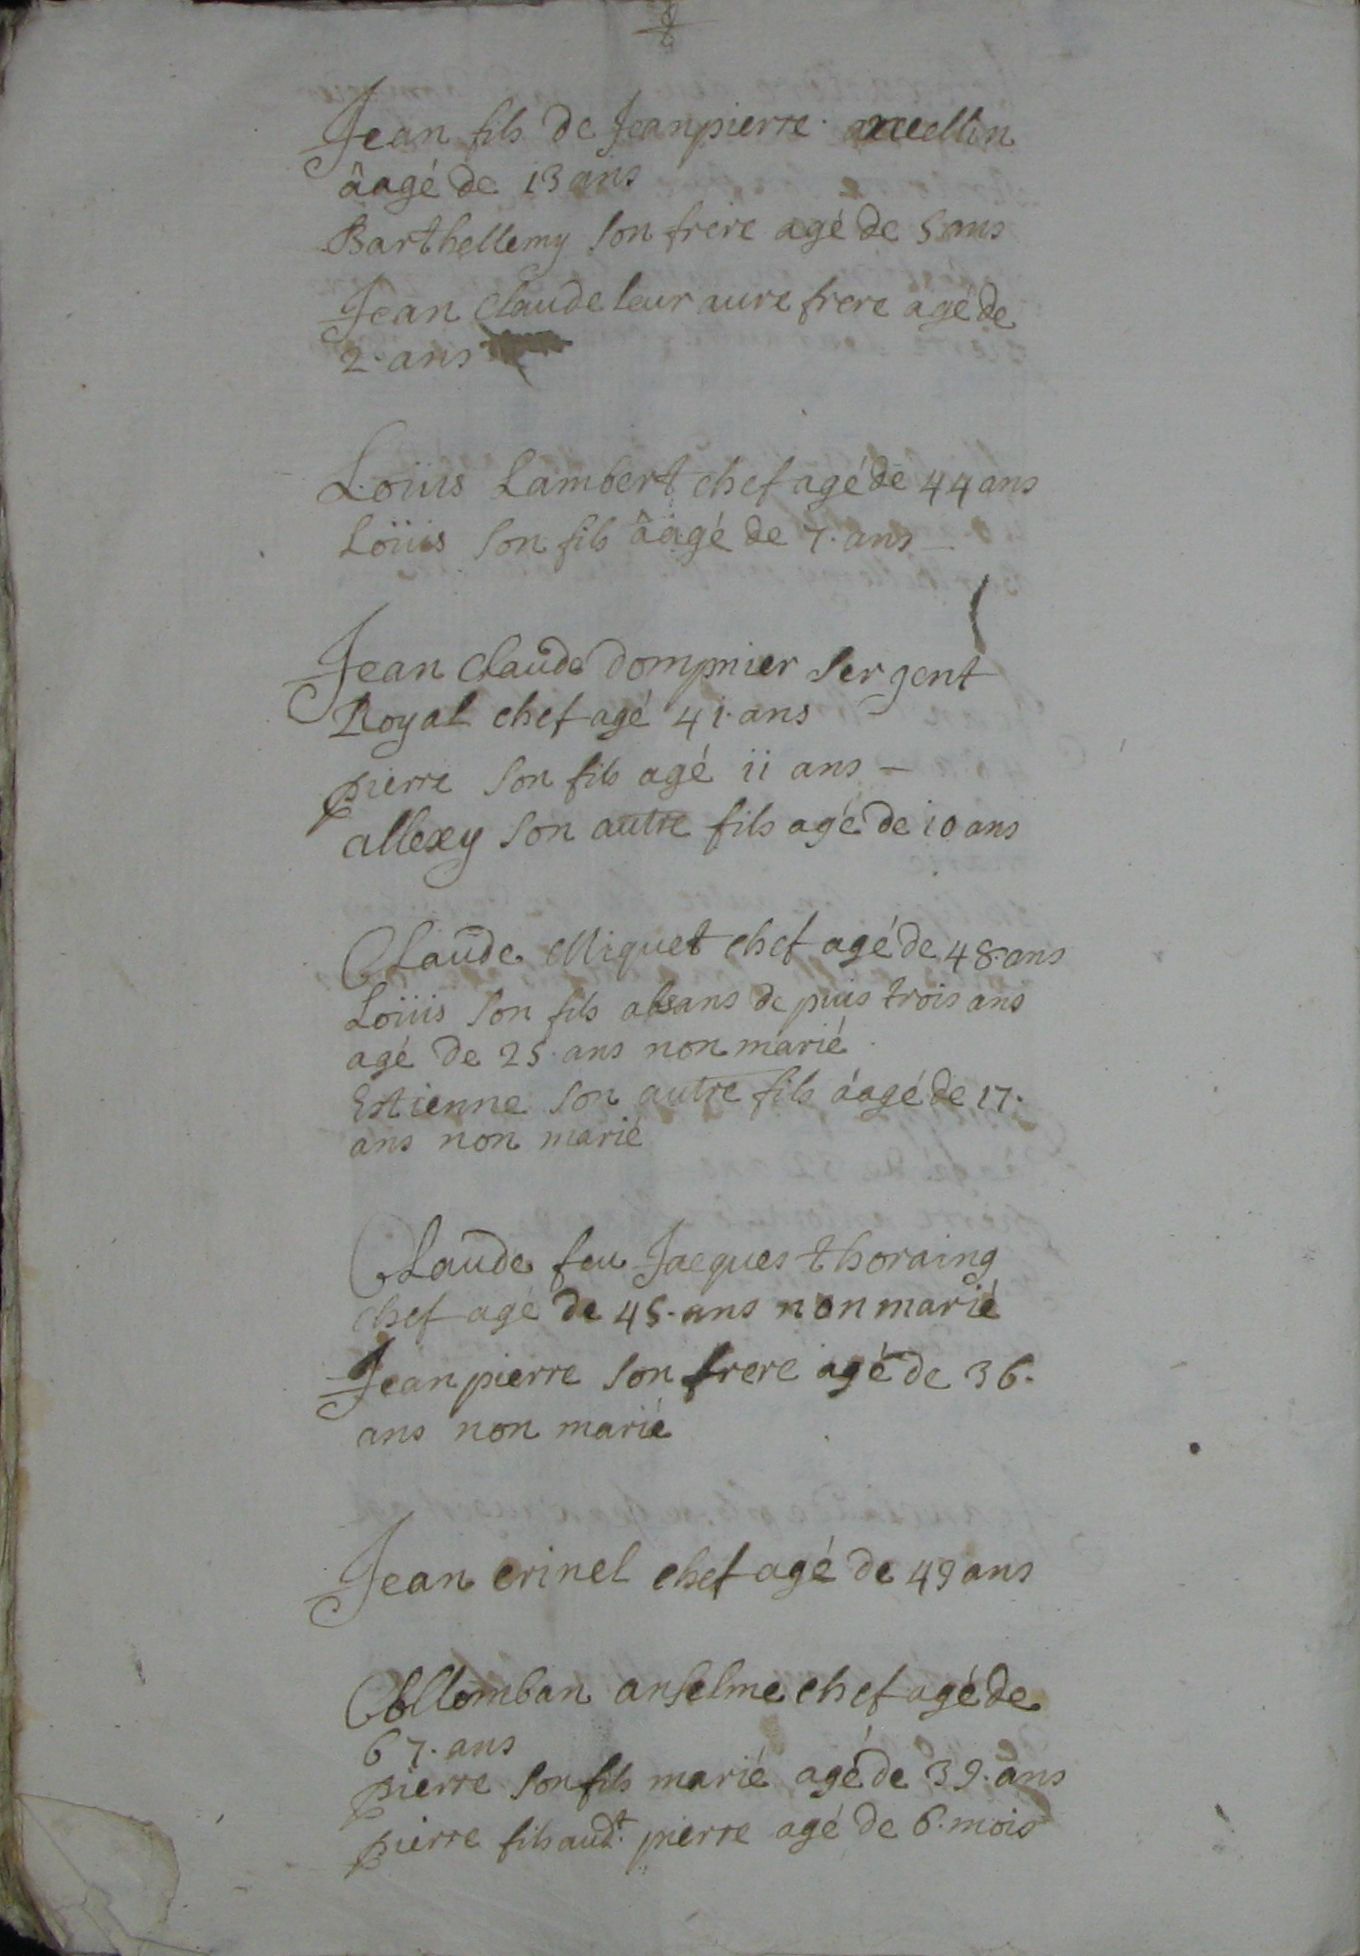 Jean fils de Jeanpierre
âagé de 13 ans
Barthellemy son frere agé de 5 ans
Jean Claude leur aure frere agé de
2. ans
Loüis Lambert chef agé de 44 ans
Loüis son fils âagé de 7. ans
Jean Claude dompnier sergent
Royal chef agé 41. ans
pierre son fils agé 11 ans -
allexy son autre fils agé de 10 ans
Claude Miquet chef agé de 48. ans
Loüis son fils absans de puis trois ans
agé de 25. ans non marié
Estienne son autre fils áagé de 17.
ans non marié
Claude feu Jacques thoraing
chef agé de 45. ans non marié
Jeanpierre son frere agé de 36.
ans non marié
Jean crinel chef agé de 49 ans
Collomban anselme chef agé de
67. ans
pierre son fils marié agé de 39. ans
pierre fils aud.t pierre agé de 6. mois